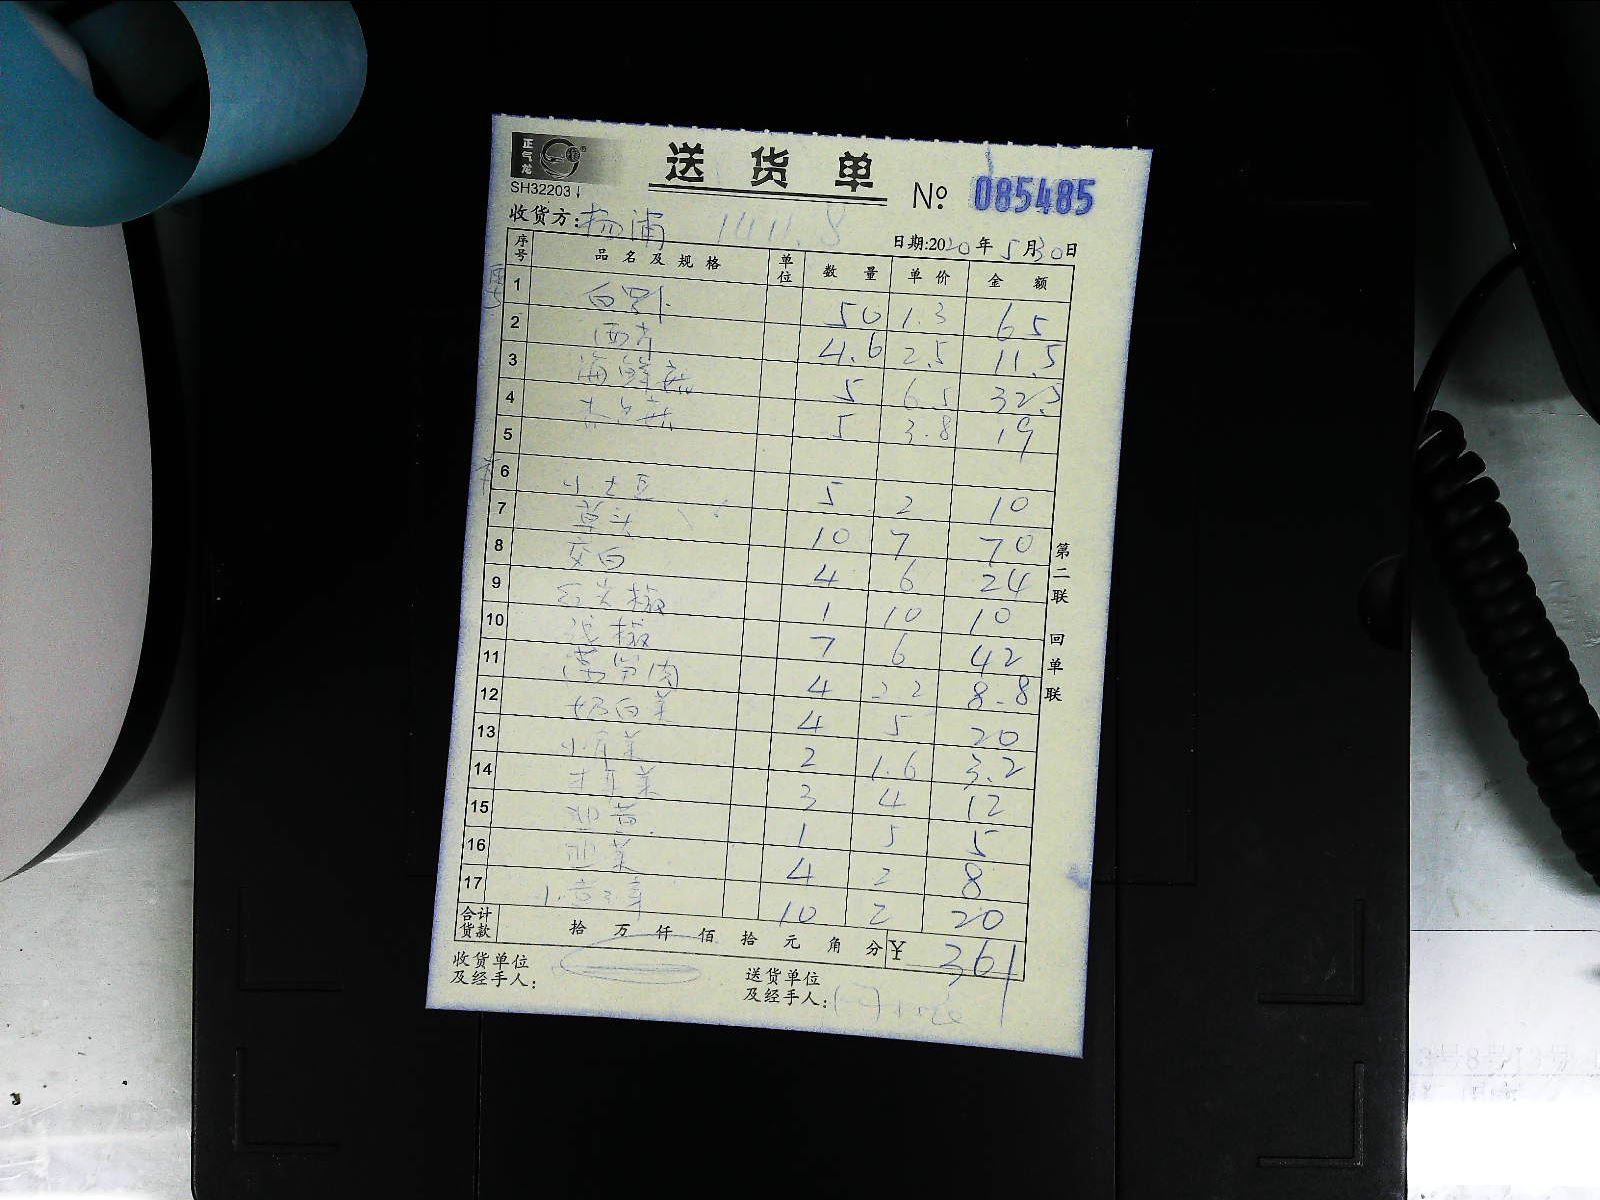 正气龙
送货单
SH32203
№ 085485
收货方: 杨浦 1411.8
日期:2020年5月30日
序号 品名及规格 单位 数量 单价 金额
1 白萝卜 50 1.3 65
2 西芹 4.6 2.5 11.5
3 海鲜菇 5 6.5 32.5
4 5 3.8 19
5
6 小土豆 5 2 10
7 草头 10 7 70
8 茭白 4 6 24
9 红尖椒 1 10 10
10 椒 7 6 42
11 莴笋肉 4 2.2 8.8
12 奶白菜 4 5 20
13 小唐菜 2 1.6 3.2
14 菜 3 4 12
15 韭黄 1 5 5
16 韭菜 4 2 8
17 小 10 2 20
合计货款 拾 万 仟 佰 拾 元 角 分 ¥ 361
收货单位及经手人:
送货单位及经手人:
第二联 回单联